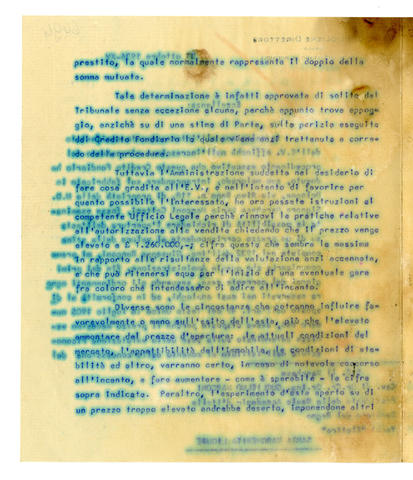 prestito, la quale normalmente rappresenta il doppio della
somma mutuata.
Tale determinazione è infatti approvata di solito dal
Tribunale senza eccezione alcuna, perchè appunto trova appog-
gio, anzichè su di una stima di Parte, sulla perizia eseguita
dal Credito Fondiario la quale viene anzi trattenuta a corre-
do della procedura.
Tuttavia l'Amministrazione suddetta nel desiderio di
fare cosa gradita all'E.V., e nell'intento di favorire per
quanto possibile l'interessato, ha ora pesate istruzioni al
competente Ufficio Legale perchè rinnovi le pratiche relative
all'autorizzazione alla vendita chiedendo che il prezzo venga
elevato a £ 1.260.000,- cifra questa che sembra la massima
in rapporto alle risultanze della valutazione anzi accennata,
e che può ritenersi equa per l'inizio di una eventuale gara
tra coloro che intendessero di adire all'incanto.
Diverse sono le circostanze che potranno influire fa-
vorevolmente o meno sull'esito dell'asta, più che l'elevato
ammontare del prezzo d'apertura: le attuali condizioni del
mercato, l'appetibilità dell'immobile, le condizioni di sta-
bilità ed altro, varranno certo, in caso di notevole concorso
all'incanto, a fare aumentare - come è sperabile - la cifra
sopra indicata. Peraltro, l'esperimento d'asta aperto su di
un prezzo troppo elevato andrebbe deserto, imponendone altri